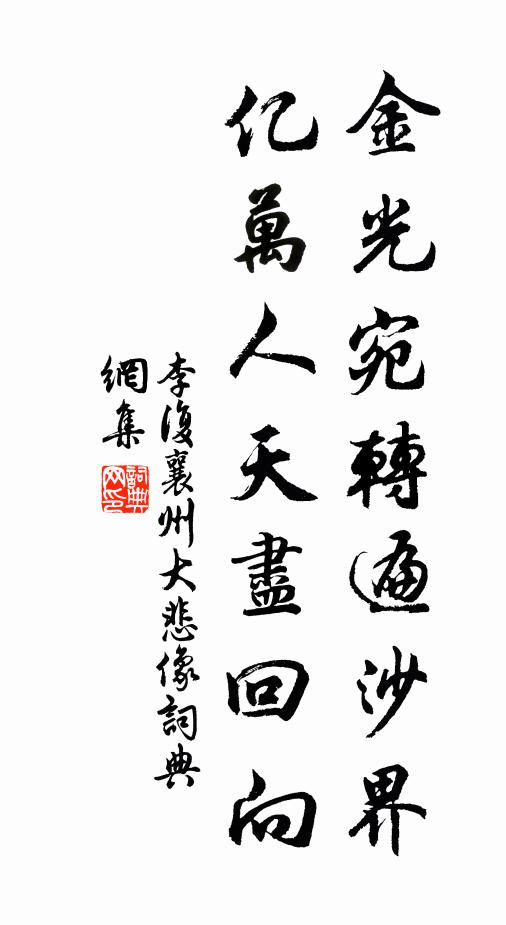 金光宛轉遍沙界
亿萬人天盡回向
李復襄州大悲像詞典
網集
詞典网印